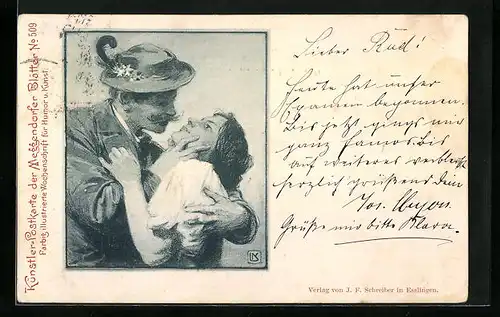 Künstler-Postkarte der Meggendorfer Blätter No 509
Farbig illustrierte Wochenschrift für Humor u. Kunst.
Lieber Rud!
Heute hat unser
Examen begonnen.
Bis jetzt gings mir
ganz famos. Bis
auf weiteres verbleibt
herzlich grüßend Dein
Jos.
Grüße mir bitte Klara.
LK
Verlag von J. F. Schreiber in Esslingen.